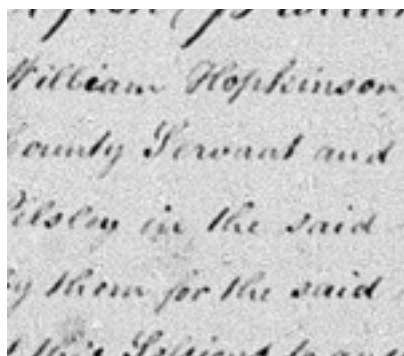 William Hopkinson
County Servant and
Pilsley in the said
by them for the said
this Sessions to